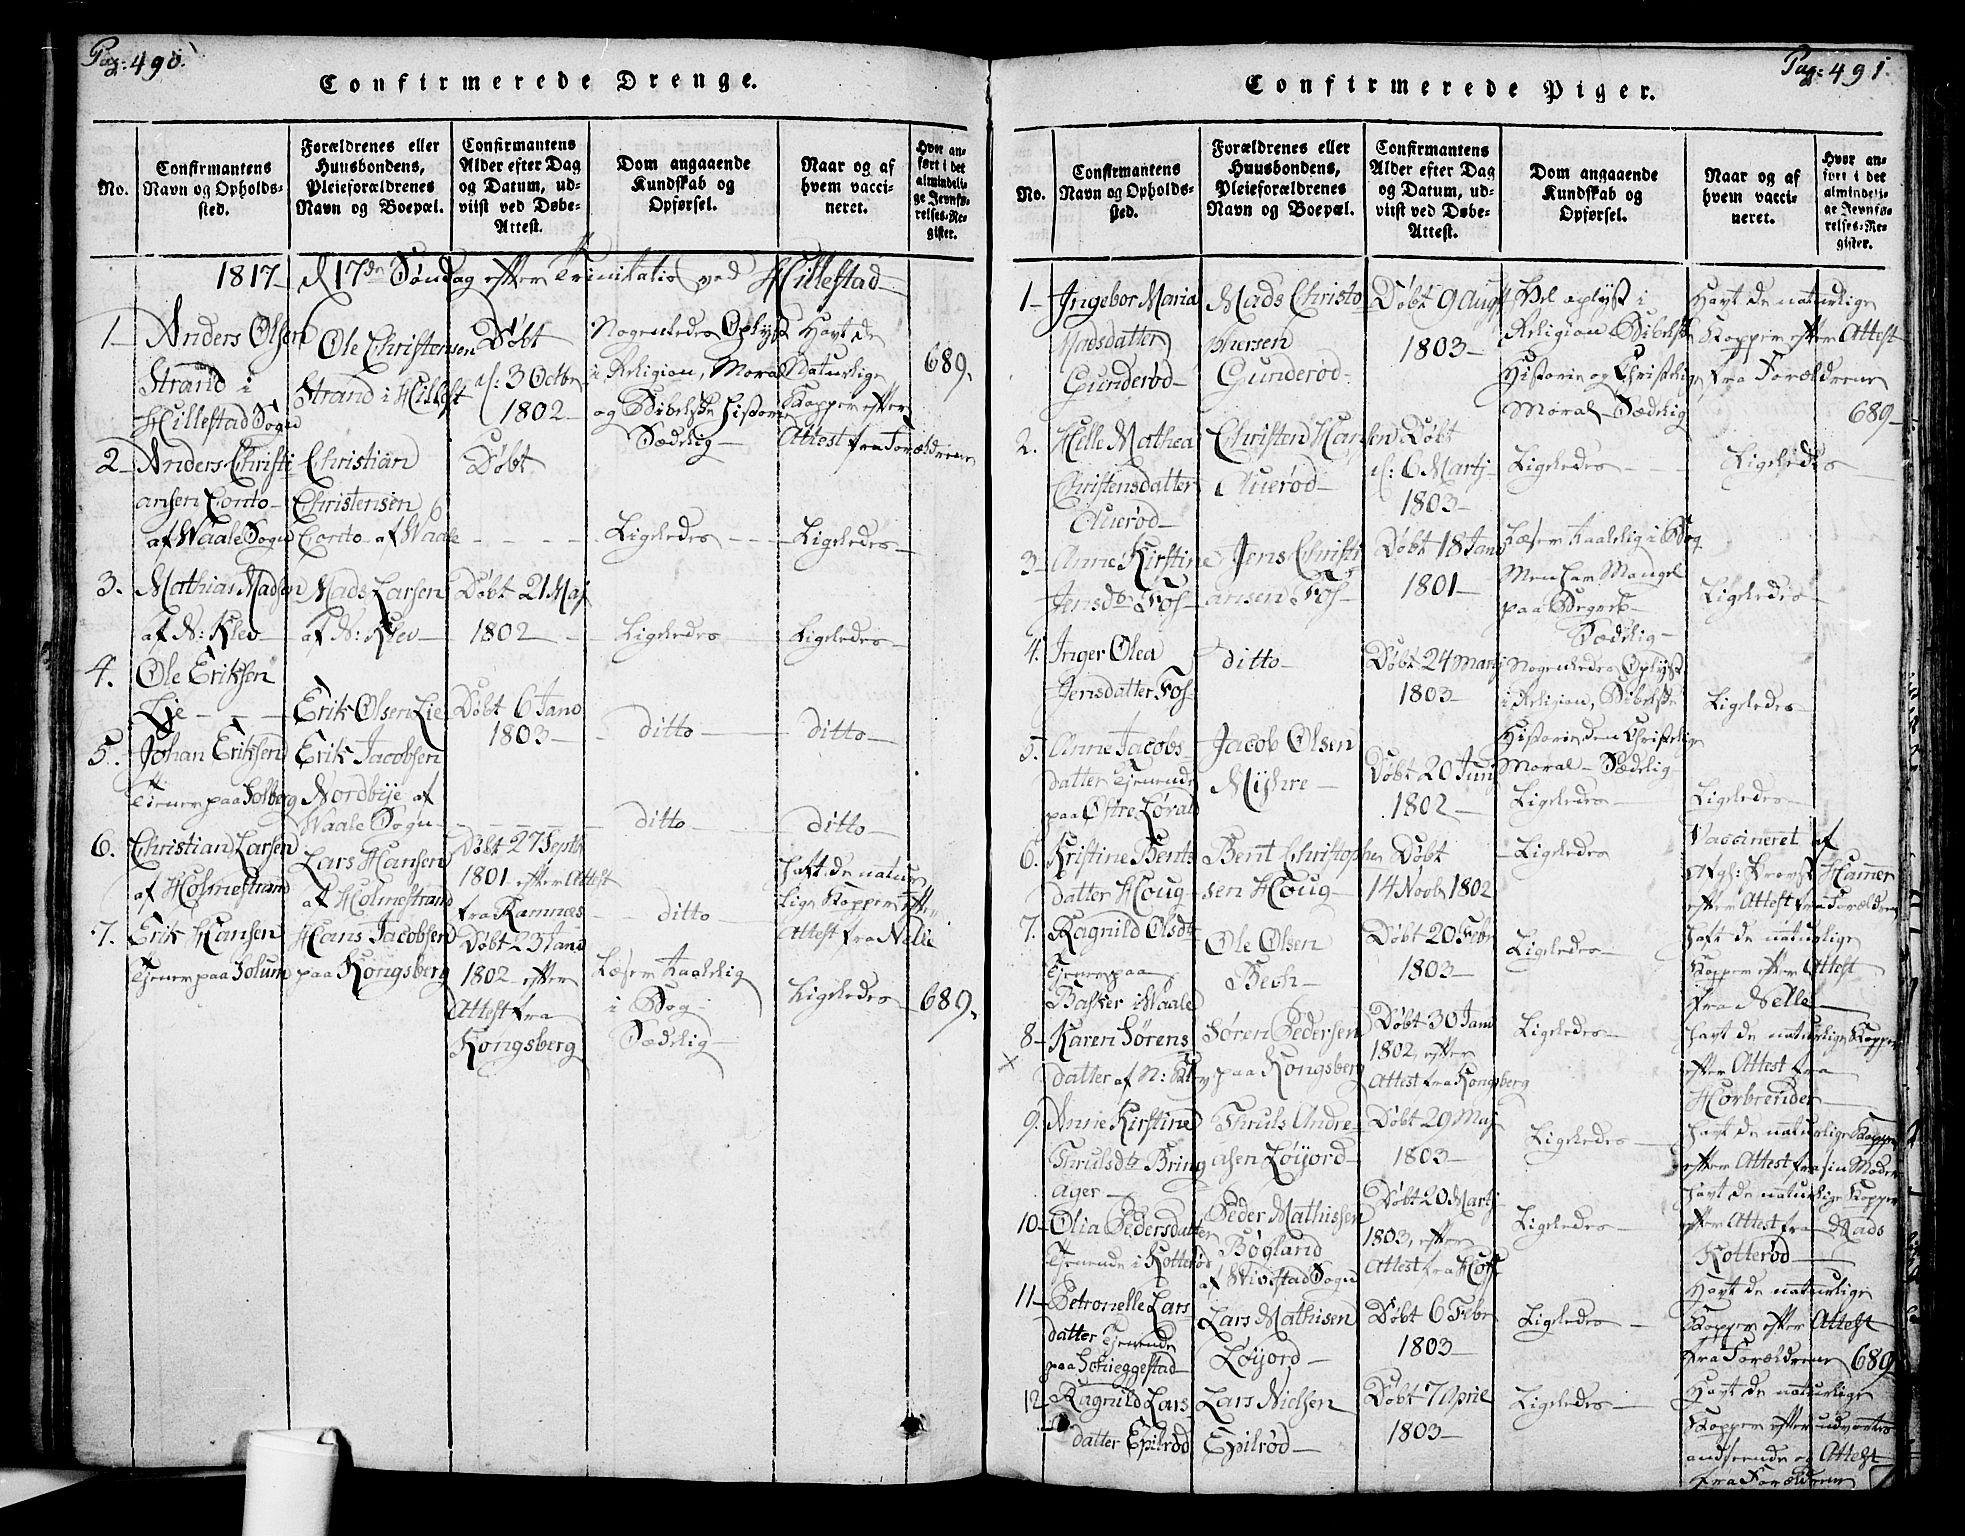 Pag: 490.
Confirmerede Drenge.
No.
Confirmantens
Navn og Opholds-
sted.
Forældrenes eller
Huusbondens,
Pleieforældrenes
Navn og Boepæl.
Confirmantens
Alder efter Dag
og Datum, ud-
viist ved Døbe-
Attest.
Dom angaaende
Kundskab og
Opførsel.
Naar og af
hvem vacci-
neret.
Hvor an-
ført i det
almindeli-
ge Jevnfø-
relses-Re-
gister.
1817 d 17de Søndag efter Trinitatis ved Hillestad
1 Anders Olsen
Strand i
Hillestad Sogn
Ole Christensen
Strand i Hillest
Døbt
d: 3 Octbr
1802
Nogenledes Oplyst
i Religion, Moral
og Bibelske Historie
Sædelig
Havt de
Naturlige
Kopper efter
Attest fra Forældrene
689.
2 Anders Christi
ansen Conto
af Waale Sogn
Christian
Christensen
Conto af Waale
Døbt
Ligeledes
Ligeledes
3. Mathias Madsen
af N: Klev
Mads Larsen
af N: Klev
Døbt 21 Maj
1802
Ligeledes
Ligeledes
4. Ole Eriksen
Lie
Erik Olsen Lie
Døbt 6 Jano
1803
ditto
ditto
5. Johan Eriksen
Tiener paa Solberg
Erik Jacobsen
Nordbye af
Waale Sogn
ditto
ditto
6. Christian Larsen
af Holmestrand
Lars Hansen
af Holmestrand
Døbt 27 Septb
1801 efter Attest
fra Ramnes
ditto
Haft de natur
lige Kopper efter
Attest fra Nelle
7. Erik Hansen
Tjener paa Solum
Hans Jacobsen
paa Kongsberg
Døbt 23 Jano
1802 efter
Attest fra
Kongsberg
Læser taalelig
i Bog
Sædelig
Ligeledes
689.
Pag: 491.
Confirmerede Piger.
No.
Confirmantens
Navn og Opholds-
sted.
Forældrenes eller
Huusbondens,
Pleieforældrenes
Navn og Boepæl.
Confirmantens
Alder efter Dag
og Datum, ud-
viist ved Døbe-
Attest.
Dom angaaende
Kundskab og
Opførsel.
Naar og af
hvem vacci-
neret.
Hvor an-
ført i det
almindeli-
ge Jevnfø-
relses-Re-
gister.
1 Ingebor Maria
Madsdatter
Gunderød
Mads Christo
phersen
Gunderød
Døbt 9 Augst
1803
Vel oplyst i
Religion Bibelsk
Historie og Christelig
Moral Sædelig
Havt de naturlige
Kopper efter Attest
fra Forældrene
689
2. Helle Mathea
Christensdatter
Auerød
Christen Hansen
Auerød
Døbt
d: 6 Martj
1803
Ligeledes
Ligeledes
3 Anne Kirstine
Jensdtr Fos
Jens Christi
ansen Fos
Døbt 18 Jano
1801
Læser taalelig i Bog
Men har Mangel
paa Begreb
Sædelig
Ligeledes
4. Inger Olea
Jensdatter Fos
ditto
Døbt 24 Martj
1803
Nogenledes Oplyst
i Religion, Bibelske
Historie, den Christelige
Moral Sædelig
Ligeledes
5. Anne Jacobs
datter Tjenende
paa Østre Løvald
Jacob Olsen
Myhre
Døbt 20 Junj
1802
Ligeledes
Ligeledes
6. Kristine Bents
datter Houg
Bent Christophe
sen Houg
Døbt
14 Novb. 1802
Ligeledes
Vaccineret af
Provst Hamer
efter Attest fra Forældrene
7. Ragnild Olsdtr
Tjener paa
Basker i Waale
Ole Olsen
Bech
Døbt 20 Febr
1803
Ligeledes
haft de naturlige
Kopper efter Attest
fra Nelle
8 Karen Sørens
datter af N: Klev
Søren Pedersen
paa Kongsberg
Døbt 30 Jano
1802, efter
Attest fra Kongsberg
Ligeledes
havt de naturlige Kopper
efter Attest fra
Horbrender
9. Anne Kirstine
Thrulsdtr Bring
ager
Thruls Andre
asen Løijord
Døbt 29 Maj
1803
Ligeledes
havt de naturlige Kopper
efter Attest fra sin Moder
10 Olia Pedersdatter
Tjenende i Kotterød
Peder Mathissen
Bøgland
af Wivestad Sogn
Døbt 20 Martj
1803, efter
Attest fra Hoff
Ligeledes
havt de naturlige Kopper
efter Attest fra Mads
Kotterød
11 Petronelle Lars
datter Tjenende
paa Schieggestad
Lars Mathisen
Løijord
Døbt 6 Febr
1803
Ligeledes
Havt de naturlige
Kopper efter Attest
fra Forældrene 689
12 Ragnild Lars
datter Epilrød
Lars Nielsen
Epilrød
Døbt 7 Aprie
1803
Ligeledes
Havt de naturlige
Kopper efter udvortes
andseende og Attest
fra Forældrene